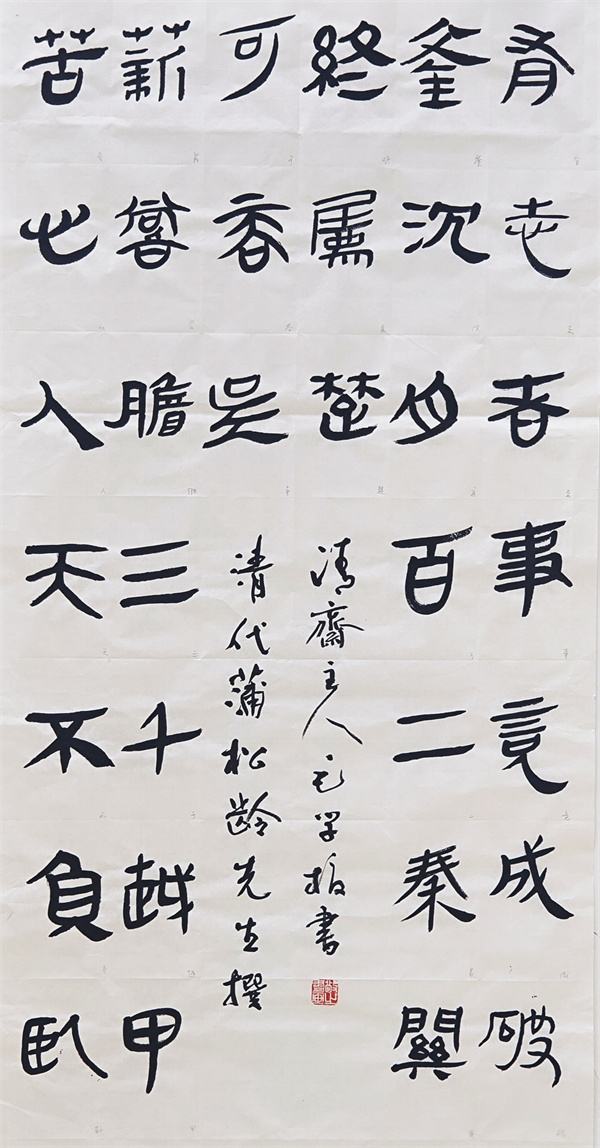 有志者事竟成破
釜沉舟百二秦關
終屬楚
苦心人天不負臥
薪嘗膽三千越甲
可吞吳
清代蒲松龄先生撰
清齋主人毛学書